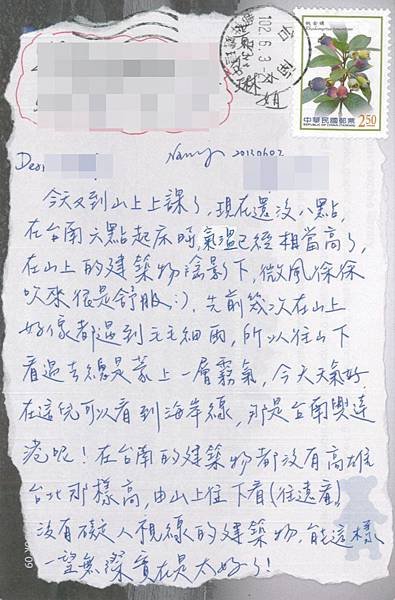 102.6.3.-2
台南
桃金孃
中華民國郵票
REPUBLIC OF CHINA (TAIWAN)
2.50
Dear
Nancy 20130602
今天又到山上上課了，現在還沒八點，
在台南六點起床時，氣溫已經相當高了，
在山上的建築物陰影下，微風徐徐
吹來很是舒服:)。先前幾次在山上
好像都遇到毛毛細雨，所以往山下
看過去總是蒙上一層霧氣，今天天氣好
在這兒可以看到海岸線，那是台南與達
港呢！在台南的建築物都沒有高雄
台北那樣高，由山上往下看(往遠看)
沒有礙人視線的建築物，能這樣
一望無際實在是太好了！